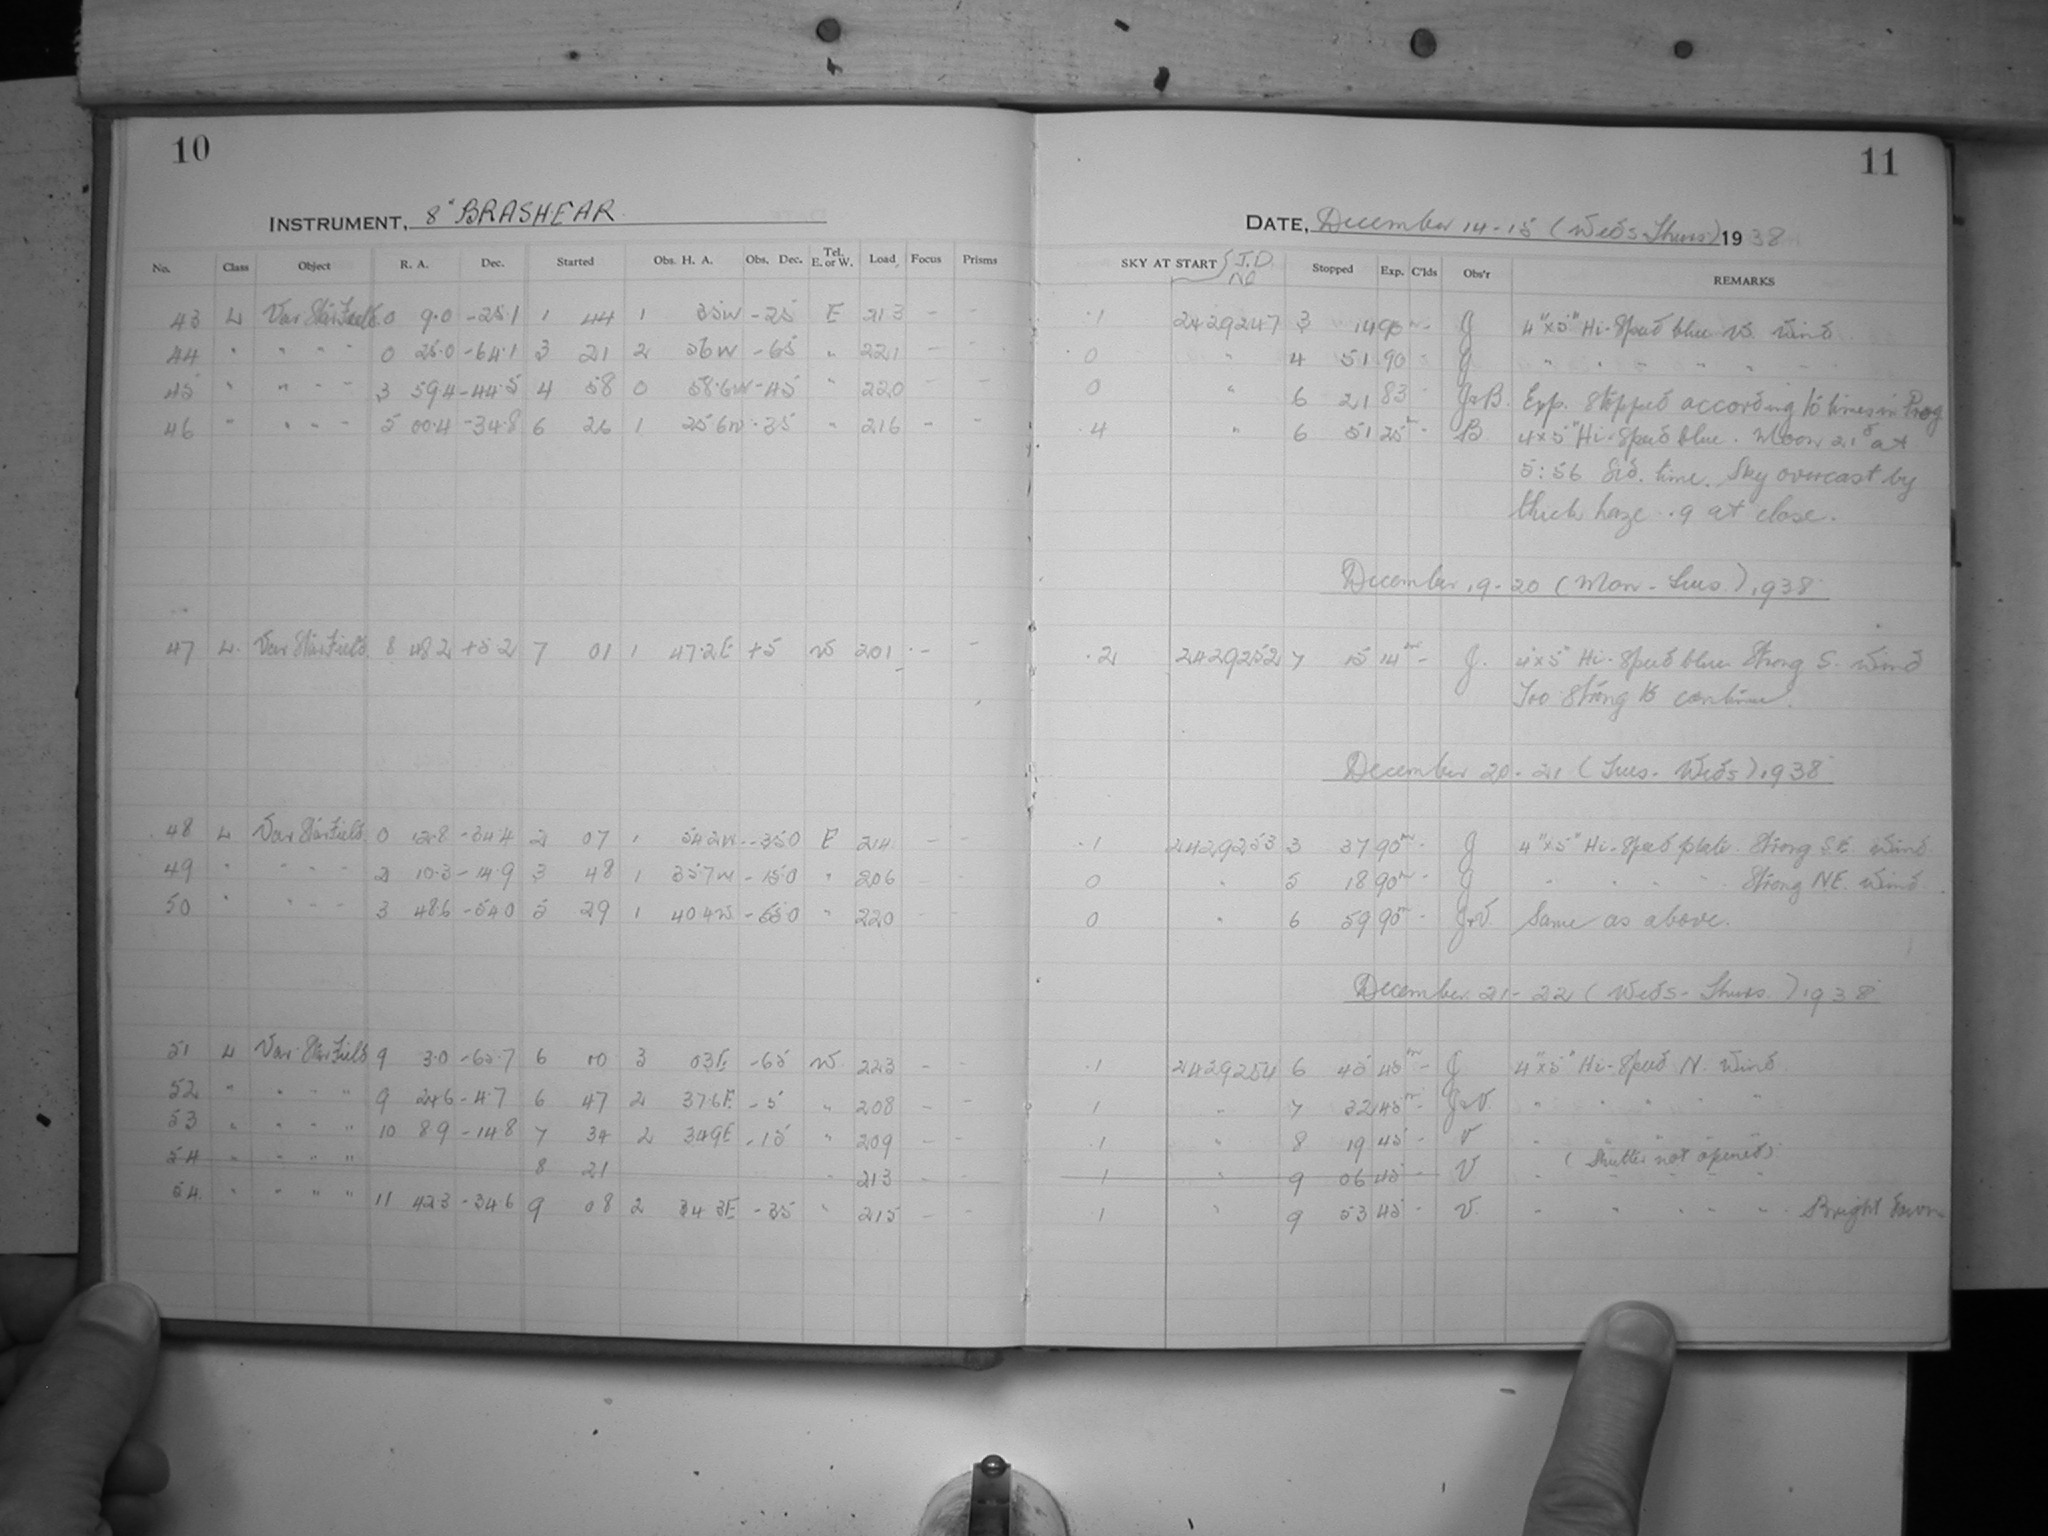 10
INSTRUMENT, 8" BRASHEAR
No. Class Object R. A. Dec. Started Obs. H. A. Obs. Dec. Tel. E. or W. Load Focus Prisms
43 L Var Star Field 0 9.0 -25.1 1 44 1 35W -25 E 213 - -
44 " " " " 0 25.0 -64.1 3 21 2 56W -65 " 221 - -
45 " " " " 3 59.4 -44.5 4 58 0 58.6W -45 " 220 - -
46 " " " " 5 00.4 -34.8 6 26 1 25.6W -35 " 216 - -
47 L Var Star Field 8 48.2 +5.2 7 01 1 47.2E +5 W 201 - -
48 L Var Star Field 0 12.8 -34.4 2 07 1 54.2W -35.0 E 214 - -
49 " " " " 2 10.3 -14.9 3 48 1 35.7W -15.0 " 206 - -
50 " " " " 3 48.6 -54.0 5 29 1 40.4W -55.0 " 220 - -
51 L Var Star Field 9 3.0 -65.7 6 00 3 03E -65 W 223 - -
52 " " " " 9 24.6 -4.7 6 47 2 37.6E -5 " 208 - -
53 " " " " 10 8.9 -14.8 7 34 2 34.9E -15 " 209 - -
54 " " " " 8 21 " 213 - -
54 " " " " 11 42.3 -34.6 9 08 2 34.3E -35 " 215 - -
11
DATE, December 14-15 (Weds-Thurs) 1938
SKY AT START { J.D. No Stopped Exp. C'lds Obs'r REMARKS
.1 2429247 3 14 90m - J 4"x5" Hi-Speed blue W. wind
0 " 4 51 90 - J " " " " " "
0 " 6 21 83 - J+B. Exp. stopped according to times in Prog
.4 " 6 51 25m - B. 4x5" Hi-Speed blue. Moon 21d at
5:56 Sid. time. Sky overcast by
thick haze - .9 at close.
December 19-20 (Mon-Tues.) 1938
.2 2429252 7 15 14m - J. 4"x5" Hi-Speed blue Strong S. wind
Too strong to continue.
December 20-21 (Tues-Weds) 1938
.1 2429253 3 37 90m - J 4"x5" Hi-Speed plate. Strong S.E. wind
0 " 5 18 90m - J " " " " Strong NE. wind.
0 " 6 59 90m - J+V. Same as above.
December 21-22 (Weds-Thurs.) 1938
.1 2429254 6 45 45m - J. 4"x5" Hi-Speed N. wind.
1 " 7 32 45m - J+V. " " " " "
.1 " 8 19 45 - V "
(Shutter not opened)
1 " 9 06 45 - V " " " " "
1 " 9 53 45 - V. " " " " " Bright Dawn